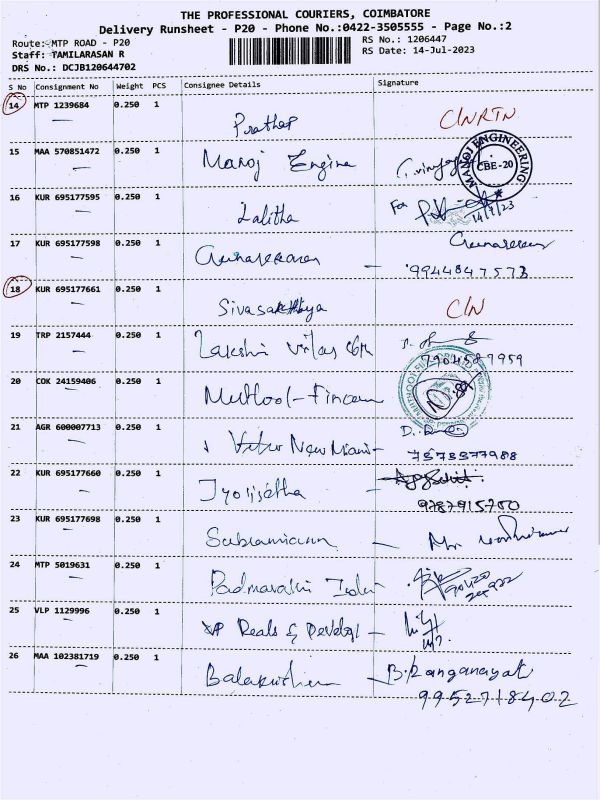 THE PROFESSIONAL COURIERS, COIMBATORE
Delivery Runsheet - P20 - Phone No.:0422-3505555 - Page No.:2
Route: MTP ROAD - P20
RS No.: 1206447
Staff: TAMILARASAN R
RS Date: 14-Jul-2023
DRS No.: DCJB120644702
S No Consignment No Weight PCS Consignee Details Signature
14 MTP 1239684 0.250 1
Prathap C/NRTN
15 MAA 570851472 0.250 1
Manoj Engine MANOJ ENGINEERING CBE-20
16 KUR 695177595 0.250 1
Lalitha For 14/7/23
17 KUR 695177598 0.250 1
Gunasekaran - Gunasekaran
9944847573
18 KUR 695177661 0.250 1
Sivasakthya C/N
19 TRP 2157444 0.250 1
Lakshmi Vilas
7904587959
20 COK 24159406 0.250 1
Muthoot-Fincorp
21 AGR 600007713 0.250 1
New
7373577988
22 KUR 695177660 0.250 1
Jyolisetha -
9787915750
23 KUR 695177698 0.250 1
Subramiann -
24 MTP 5019631 0.250 1
Padmavathi
25 VLP 1129996 0.250 1
VP Reals & Develop -
26 MAA 102381719 0.250 1
- B. Ranganayak
9952718402